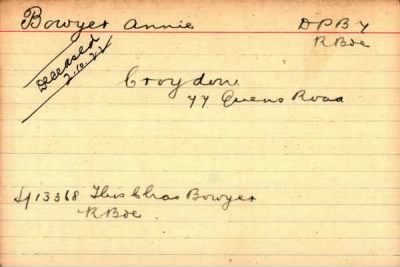 Bowyer Annie DPB 4
R Bde
Deceased
2.6.22
Croydon
77 Queens Road
13368 Thos Chas Bowyer
R Bde